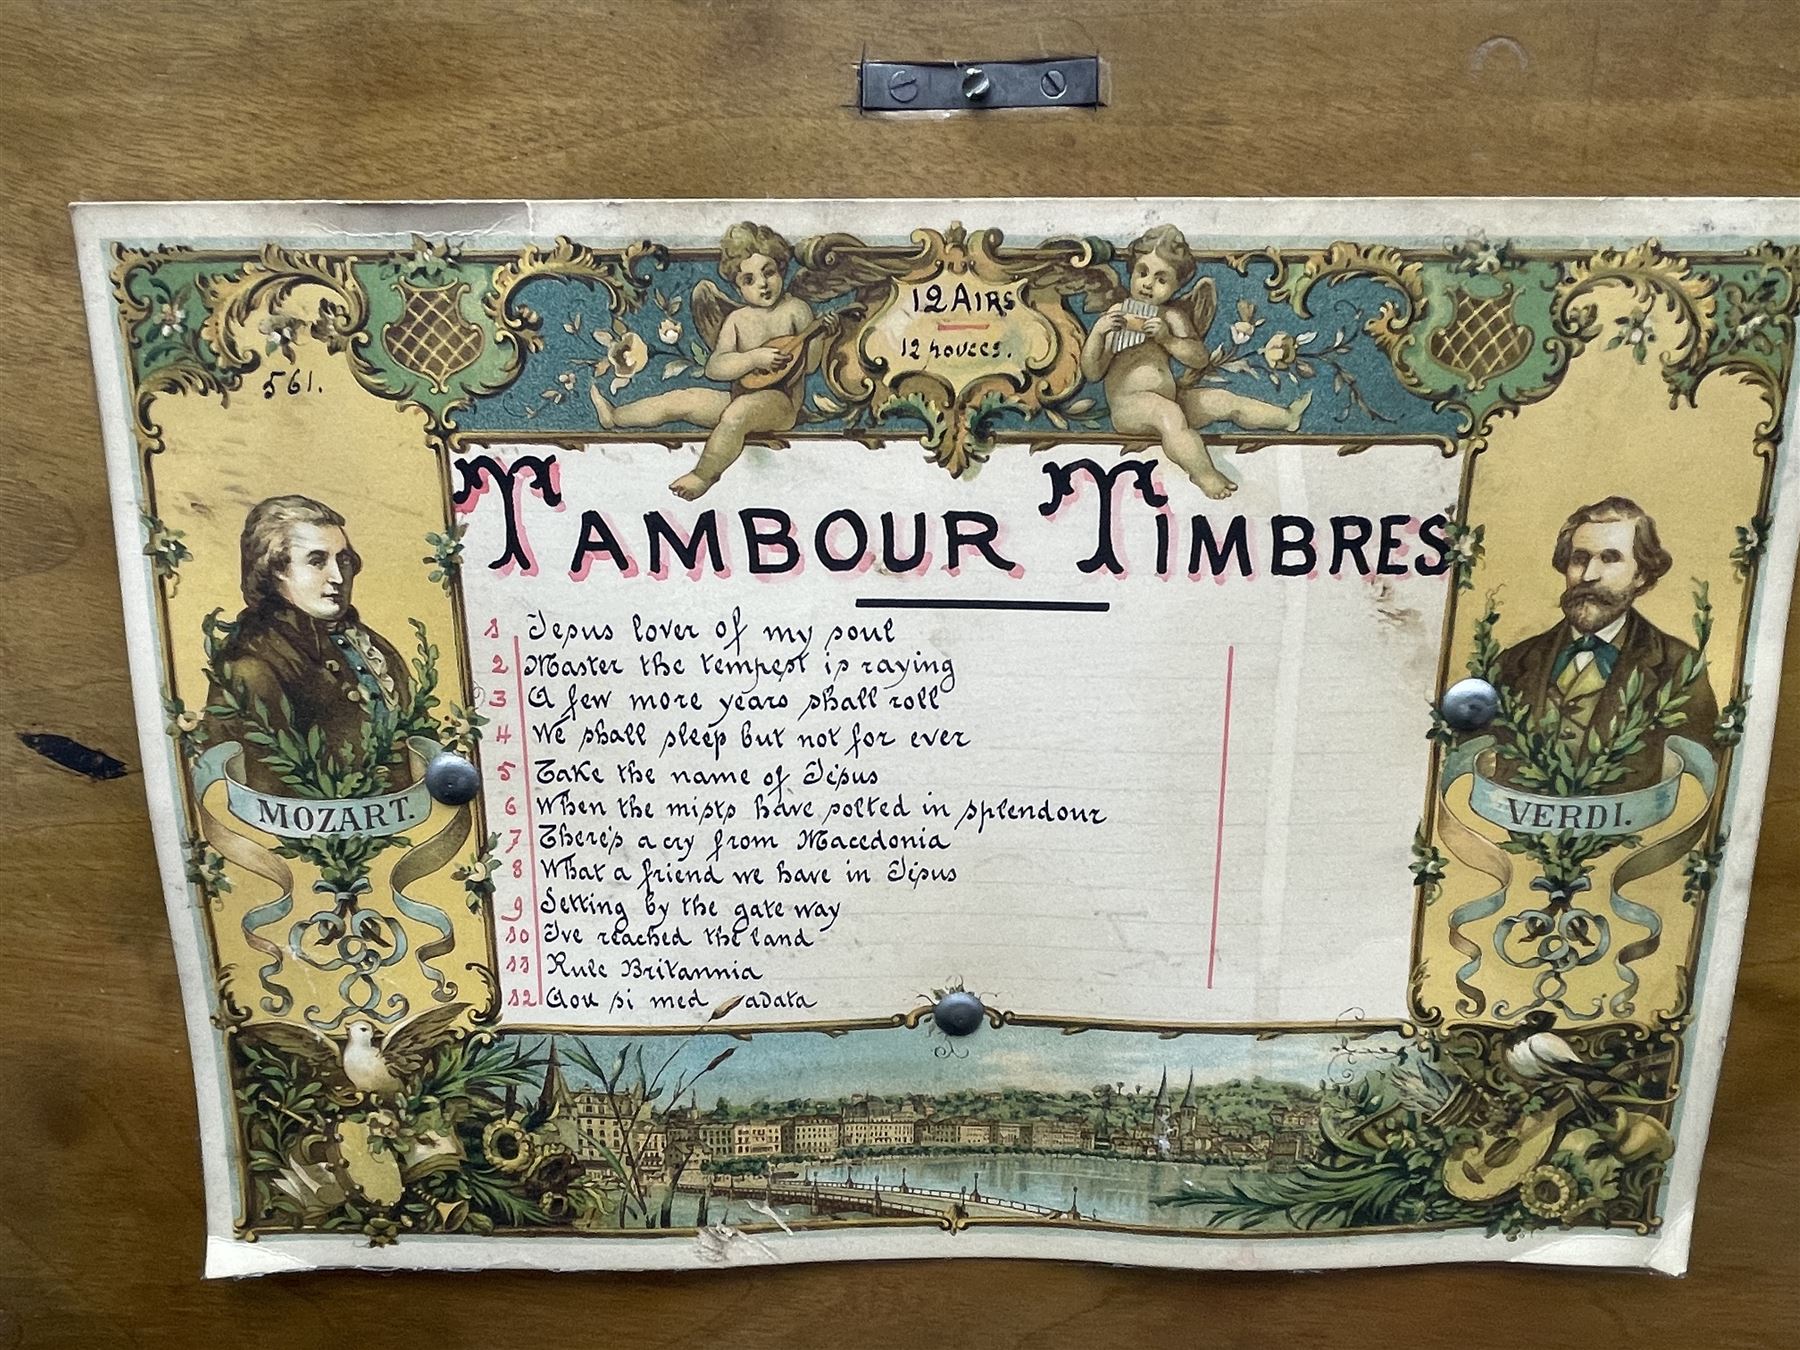 12 AIRS
12 pouces.
561.
TAMBOUR TIMBRES
1 Jesus lover of my soul
2 Master the tempest is raying
3 A few more years shall roll
4 We shall sleep but not for ever
5 Take the name of Jesus
6 When the mists have rolted in splendour
7 There's a cry from Macedonia
8 What a friend we have in Jesus
9 Setting by the gate way
10 I've reached the land
11 Rule Britannia
12 si med
MOZART.
VERDI.